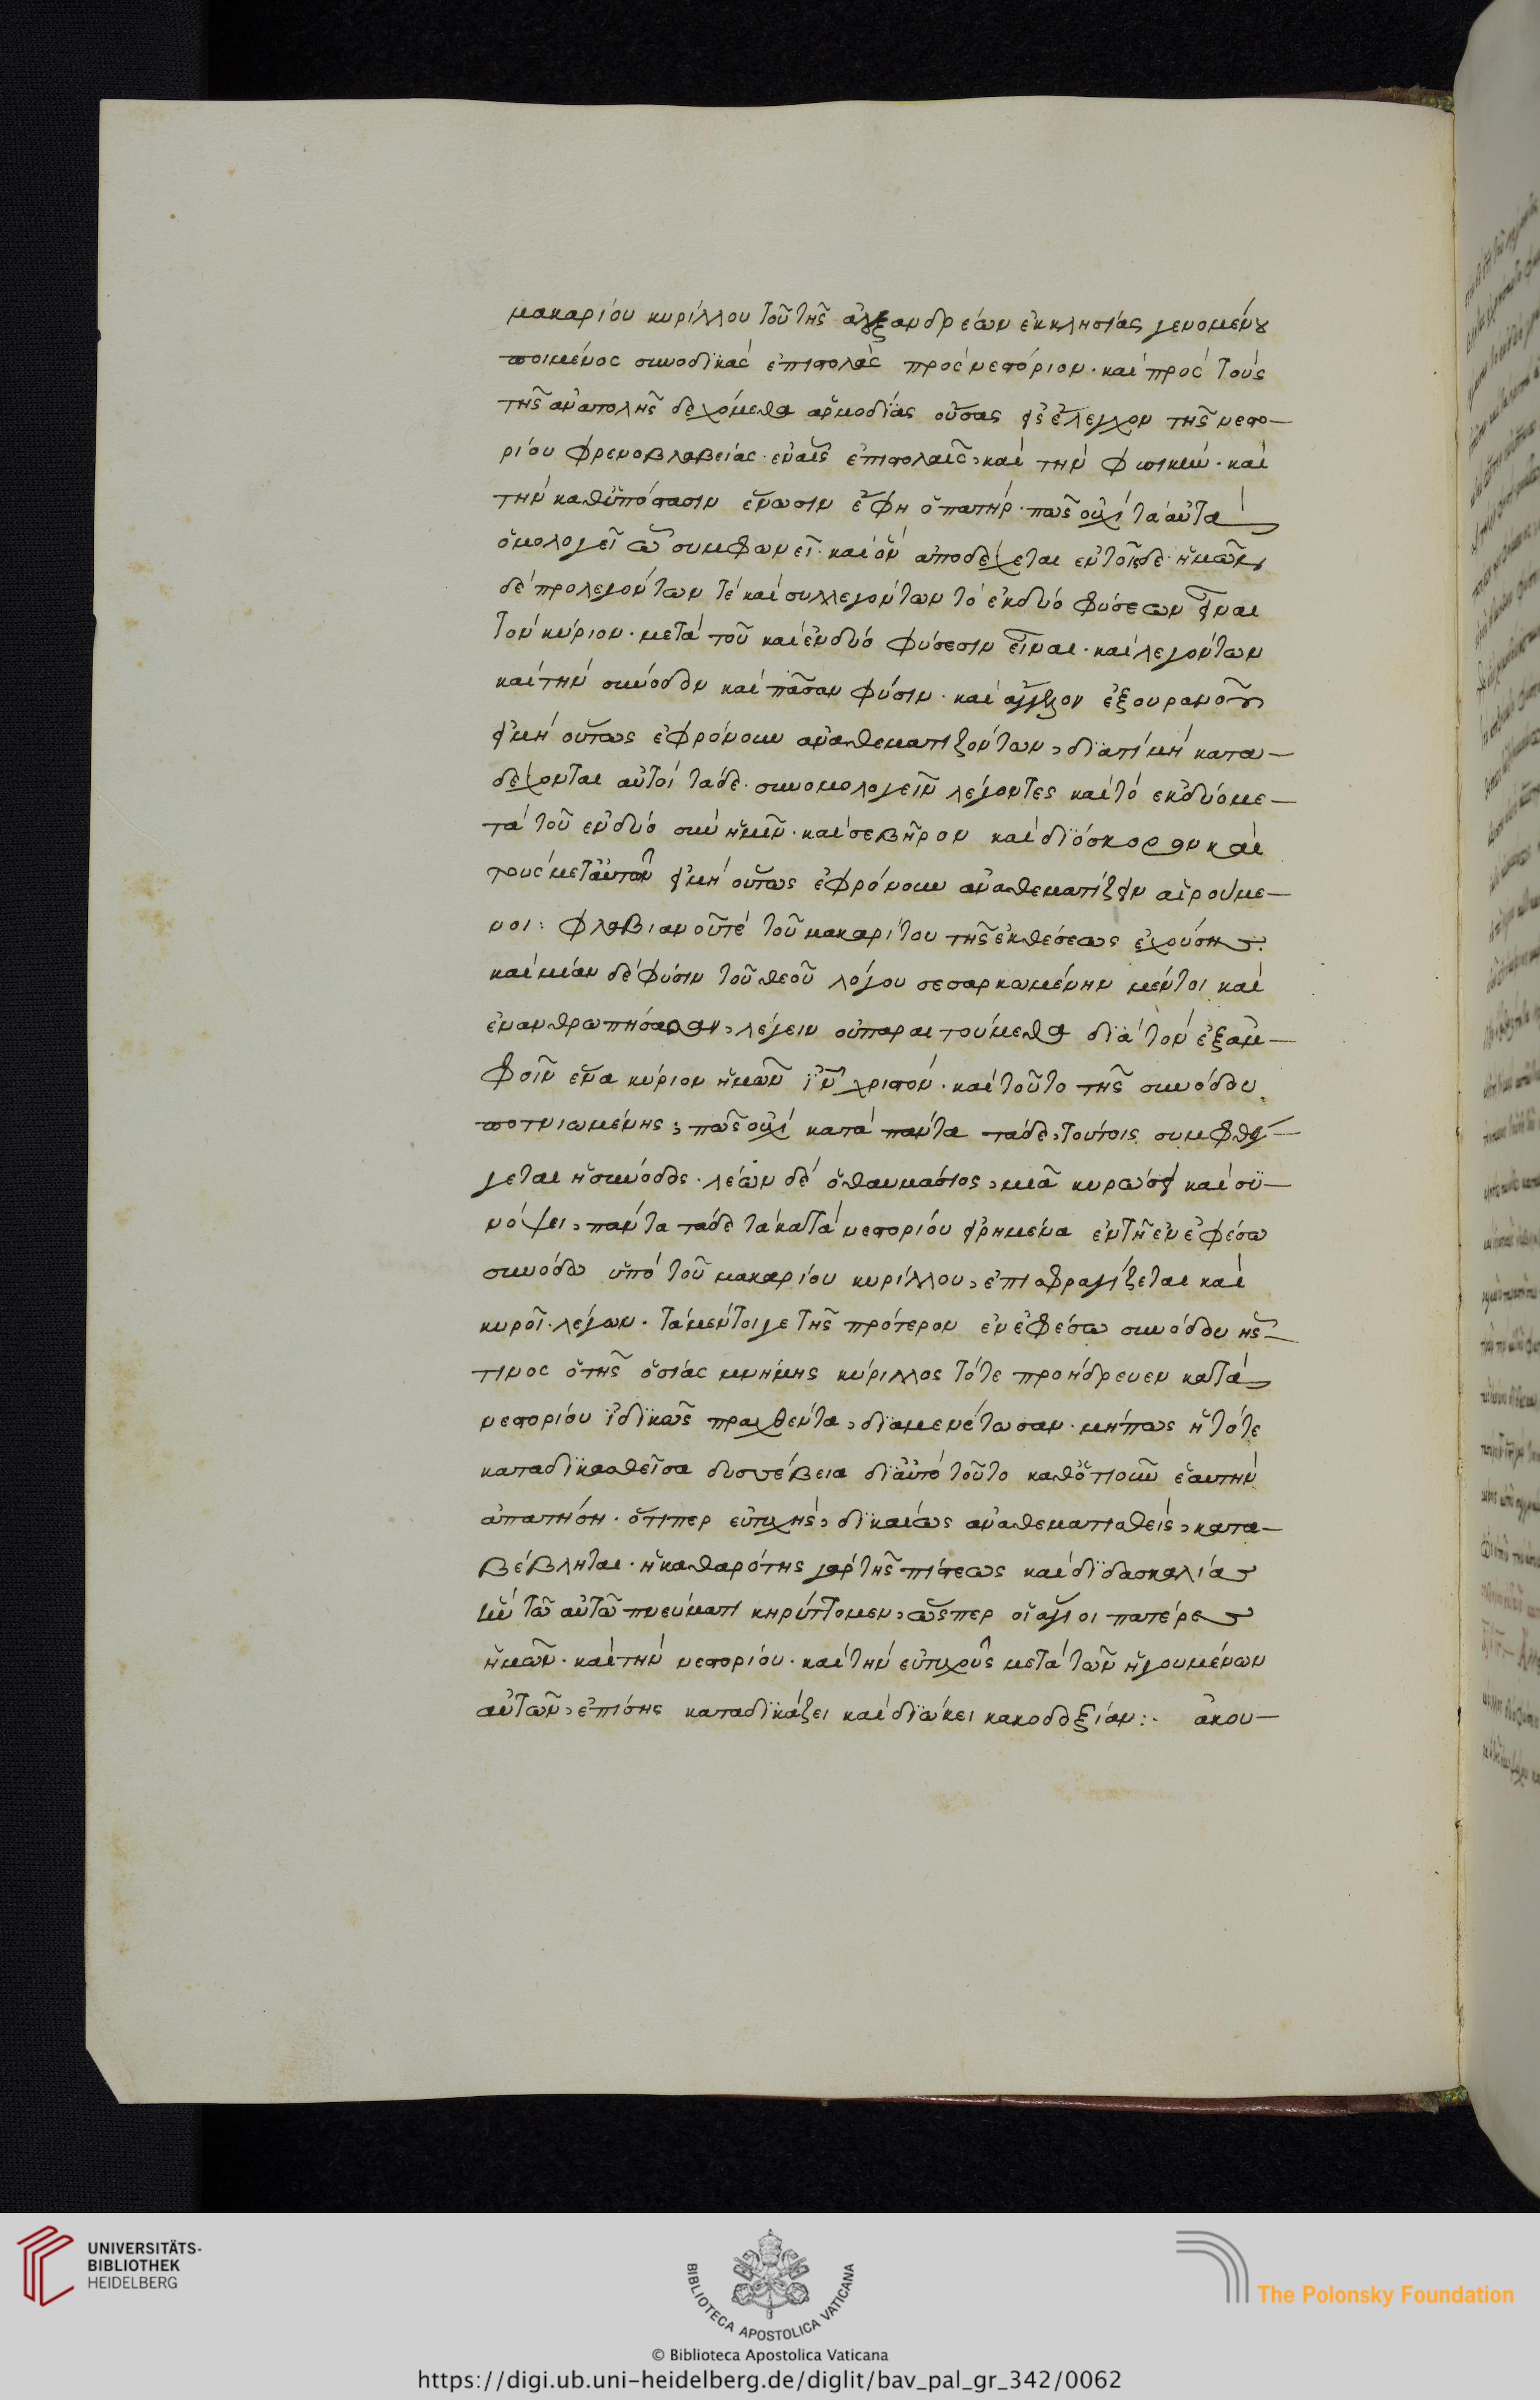 μακαρίου κυρίλλου τοῦ τῆς ἀλεξανδρέων ἐκκλησίας γενομένου
ποιμένος συνοδικὰς ἐπιστολὰς πρὸς νεστόριον· καὶ πρὸς τοὺς
τῆς ἀνατολῆς δεχόμεθα ἁρμοδίας οὔσας εἰς ἔλεγχον τῆς νεστο-
ρίου φρενοβλαβείας· ἐν αἷς ἐπιστολαῖς, καὶ τὴν φυσικὴν· καὶ
τὴν καθ' ὑπόστασιν ἕνωσιν ἔφη ὁ πατήρ· πῶς οὐχὶ τὰ αὐτὰ
ὁμολογεῖ ᾧ συμφωνεῖ· καὶ ὃν ἀποδέχεται ἐν τοῖσδε· ἡμῶν
δὲ προλεγόντων τὲ καὶ συλλεγόντων τὸ ἐκ δύο φύσεων εἶναι
τὸν κύριον· μετὰ τοῦ καὶ ἐν δύο φύσεσιν εἶναι· καὶ λεγόντων
καὶ τὴν σύνοδον καὶ πᾶσαν φύσιν· καὶ ἄγγελον ἐξ οὐρανοῦ
εἰ μὴ οὕτως ἐφρόνουν ἀναθεματιζόντων, διατί μὴ κατα-
δέχονται αὐτοὶ τάδε· συνομολογεῖν λέγοντες καὶ τὸ ἐκ δύο με-
τὰ τοῦ ἐν δύο σὺν ἡμῖν· καὶ σεβῆρον καὶ διόσκορον καὶ
τοὺς μετ' αὐτῶν εἰ μὴ οὕτως ἐφρόνουν ἀναθεματίζειν αἱρούμε-
νοι: φλαβιανοῦ τὲ τοῦ μακαρίτου τῆς ἐκθέσεως ἐχούσης
καὶ μίαν δὲ φύσιν τοῦ θεοῦ λόγου σεσαρκωμένην μέντοι καὶ
ἐνανθρωπήσασαν, λέγειν οὐ παραιτούμεθα διὰ τὸν ἐξ ἀμ-
φοῖν ἕνα κύριον ἡμῶν ἰν χριστόν· καὶ τοῦτο τῆς συνόδου
ποτνιωμένης, πῶς οὐχὶ κατὰ πάντα τάδε, τούτοις συμφθέγ-
γεται ἡ σύνοδος· λέων δὲ ὁ θαυμάσιος, μιᾶ κυρώσει καὶ συ-
νόψει, πάντα τάδε τὰ κατὰ νεστορίου εἰρημένα ἐν τῆ ἐν ἐφέσω
συνόδω ὑπὸ τοῦ μακαρίου κυρίλλου, ἐπισφραγίζεται καὶ
κυροῖ· λέγων· τὰ μέντοιγε τῆς πρότερον ἐν ἐφέσω συνόδου ἧς
τινος ὁ τῆς ὁσίας μνήμης κύριλλος τότε προήδρευεν κατὰ
νεστορίου ἰδικῶς πραχθέντα, διαμενέτωσαν· μήπως ἡ τότε
καταδικασθεῖσα δυσσέβεια δι' αὐτὸ τοῦτο καθ' ὁτιοῦν ἑαυτὴν
ἀπατήση· ὅτιπερ εὐτυχής, δικαίως ἀναθεματισθείς, κατα-
βέβληται· ἡ καθαρότης γὰρ τῆς πίστεως καὶ διδασκαλίας
ἣν τῶ αὐτῶ πνεύματι κηρύττομεν, ὥσπερ οἱ ἅγιοι πατέρες
ἡμῶν· καὶ τὴν νεστορίου· καὶ τὴν εὐτυχοῦς μετὰ τῶν ἡγουμένων
αὐτῶν, ἐπίσης καταδικάζει καὶ διώκει κακοδοξίαν:· ἀκου-
UNIVERSITÄTS-
BIBLIOTHEK
HEIDELBERG
BIBLIOTECA APOSTOLICA VATICANA
The Polonsky Foundation
© Biblioteca Apostolica Vaticana
https://digi.ub.uni-heidelberg.de/diglit/bav_pal_gr_342/0062